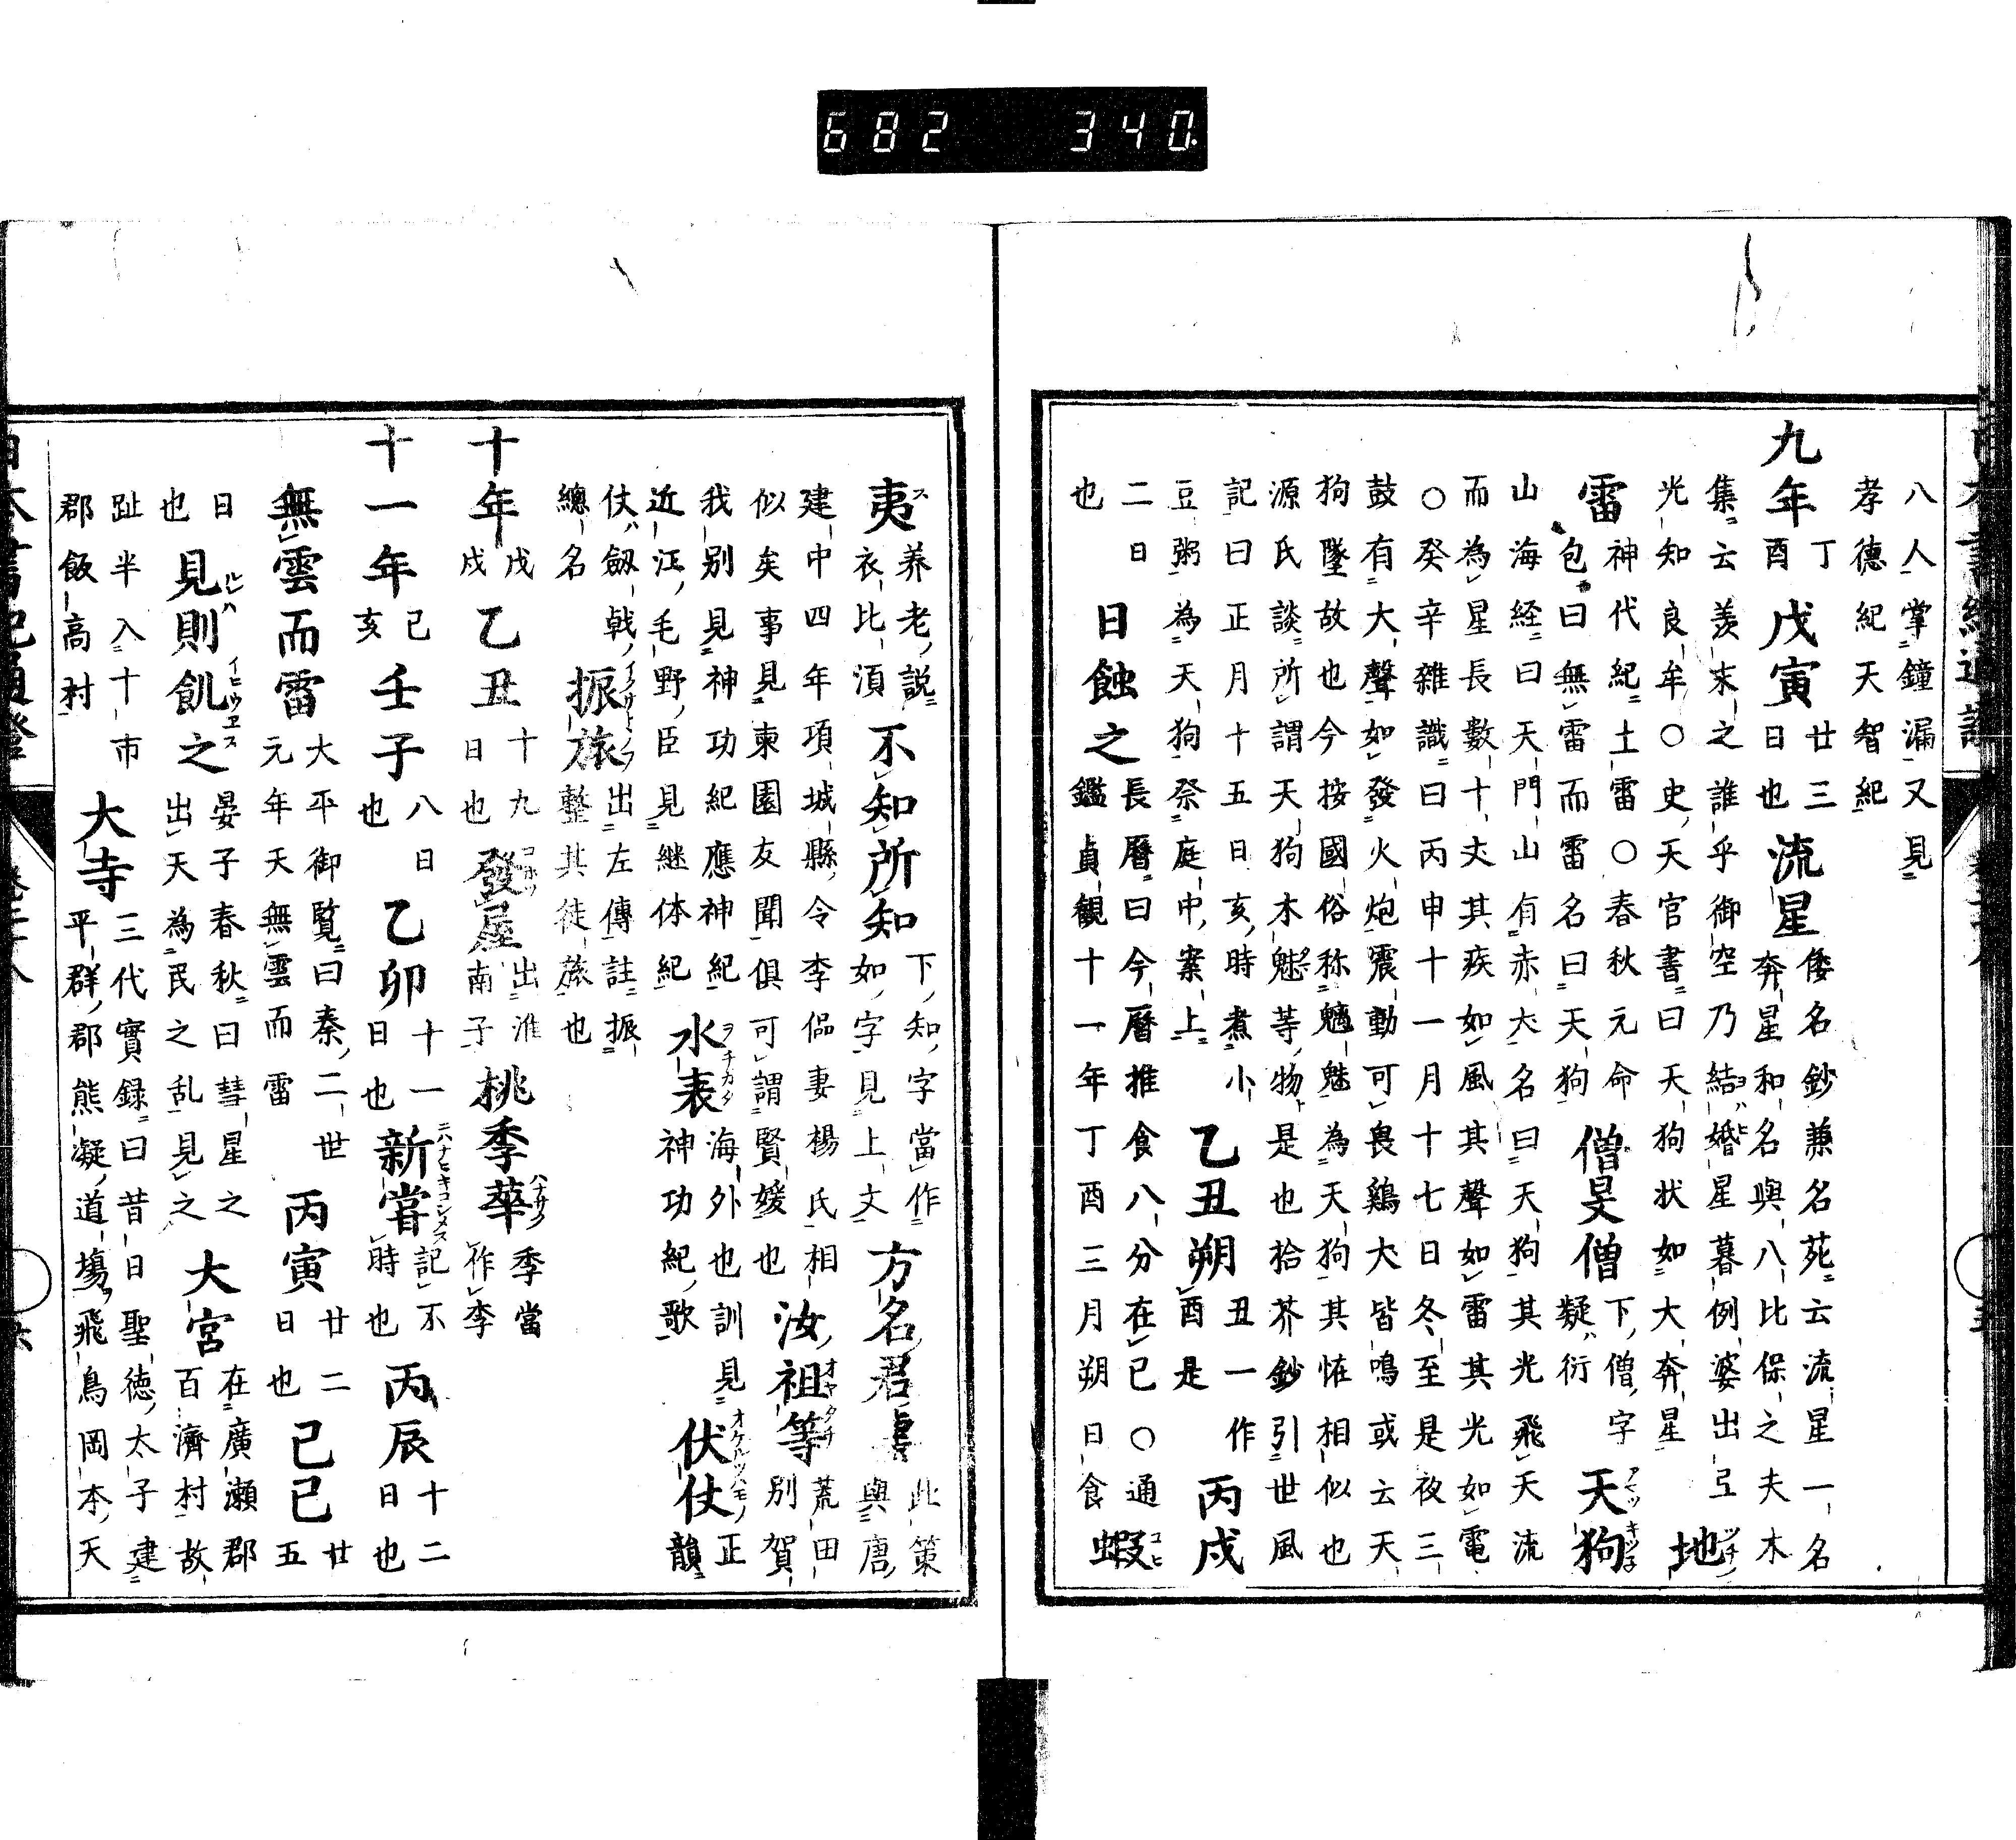 682 340
八人掌鐘漏又見
孝德紀天智紀
九年丁酉戊寅廿三日也流星倭名鈔兼名苑云流星一名
奔星和名與八比保之夫木
集云羨末之誰乎御空乃結婚星暮例婆出
光知良牟○史天官書曰天狗状如大奔星地
雷神代紀土雷○春秋元命
包曰無雷而雷名曰天狗僧旻僧下僧字
疑衍天狗
山海経曰天門山有赤犬名曰天狗其光飛天流
而為星長數十丈其疾如風其聲如雷其光如電
○癸辛雜識曰丙申十一月十七日冬至是夜三
鼓有大聲如發火炮震動可畏鷄犬皆鳴或云天
狗墜故也今按國俗称魑魅為天狗其恠相似也
源氏談所謂天狗木魅等物是也拾芥鈔引世風
記曰正月十五日亥時煮小
豆粥為天狗祭庭中案上乙丑朔丑一作
酉是丙戌
二日
也日蝕之長曆曰今曆推食八分在巳○通
鑑貞観十一年丁酉三月朔日食蝦
夷养老說
衣比須不知所知下知字當作
如字見上文方名君乎此策
與唐
建中四年項城縣令李侃妻楊氏相
似矣事見東園友聞俱可謂賢媛也汝祖等荒田
別賀
我別見神功紀應神紀
近江毛野臣見継体紀水表海外也訓見
神功紀歌伏仗正
韻
仗劔戟
總名振旅出左傳註振
整其徒旅也
十年戊戌乙丑十九
日也發屋出淮
南子桃季華季當
作李
十一年己亥壬子八日
也乙卯十一
日也新嘗記不
時也丙辰十二
日也
無雲而雷大平御覧曰秦二世
元年天無雲而雷丙寅廿二
日也己巳廿
五
日
也見則飢之晏子春秋曰彗星之
出天為民之乱見之大宮在廣瀬郡
百濟村故
趾半入十市
郡飯高村大寺三代實録曰昔日聖徳太子建
平群郡熊凝道塲飛鳥岡本天